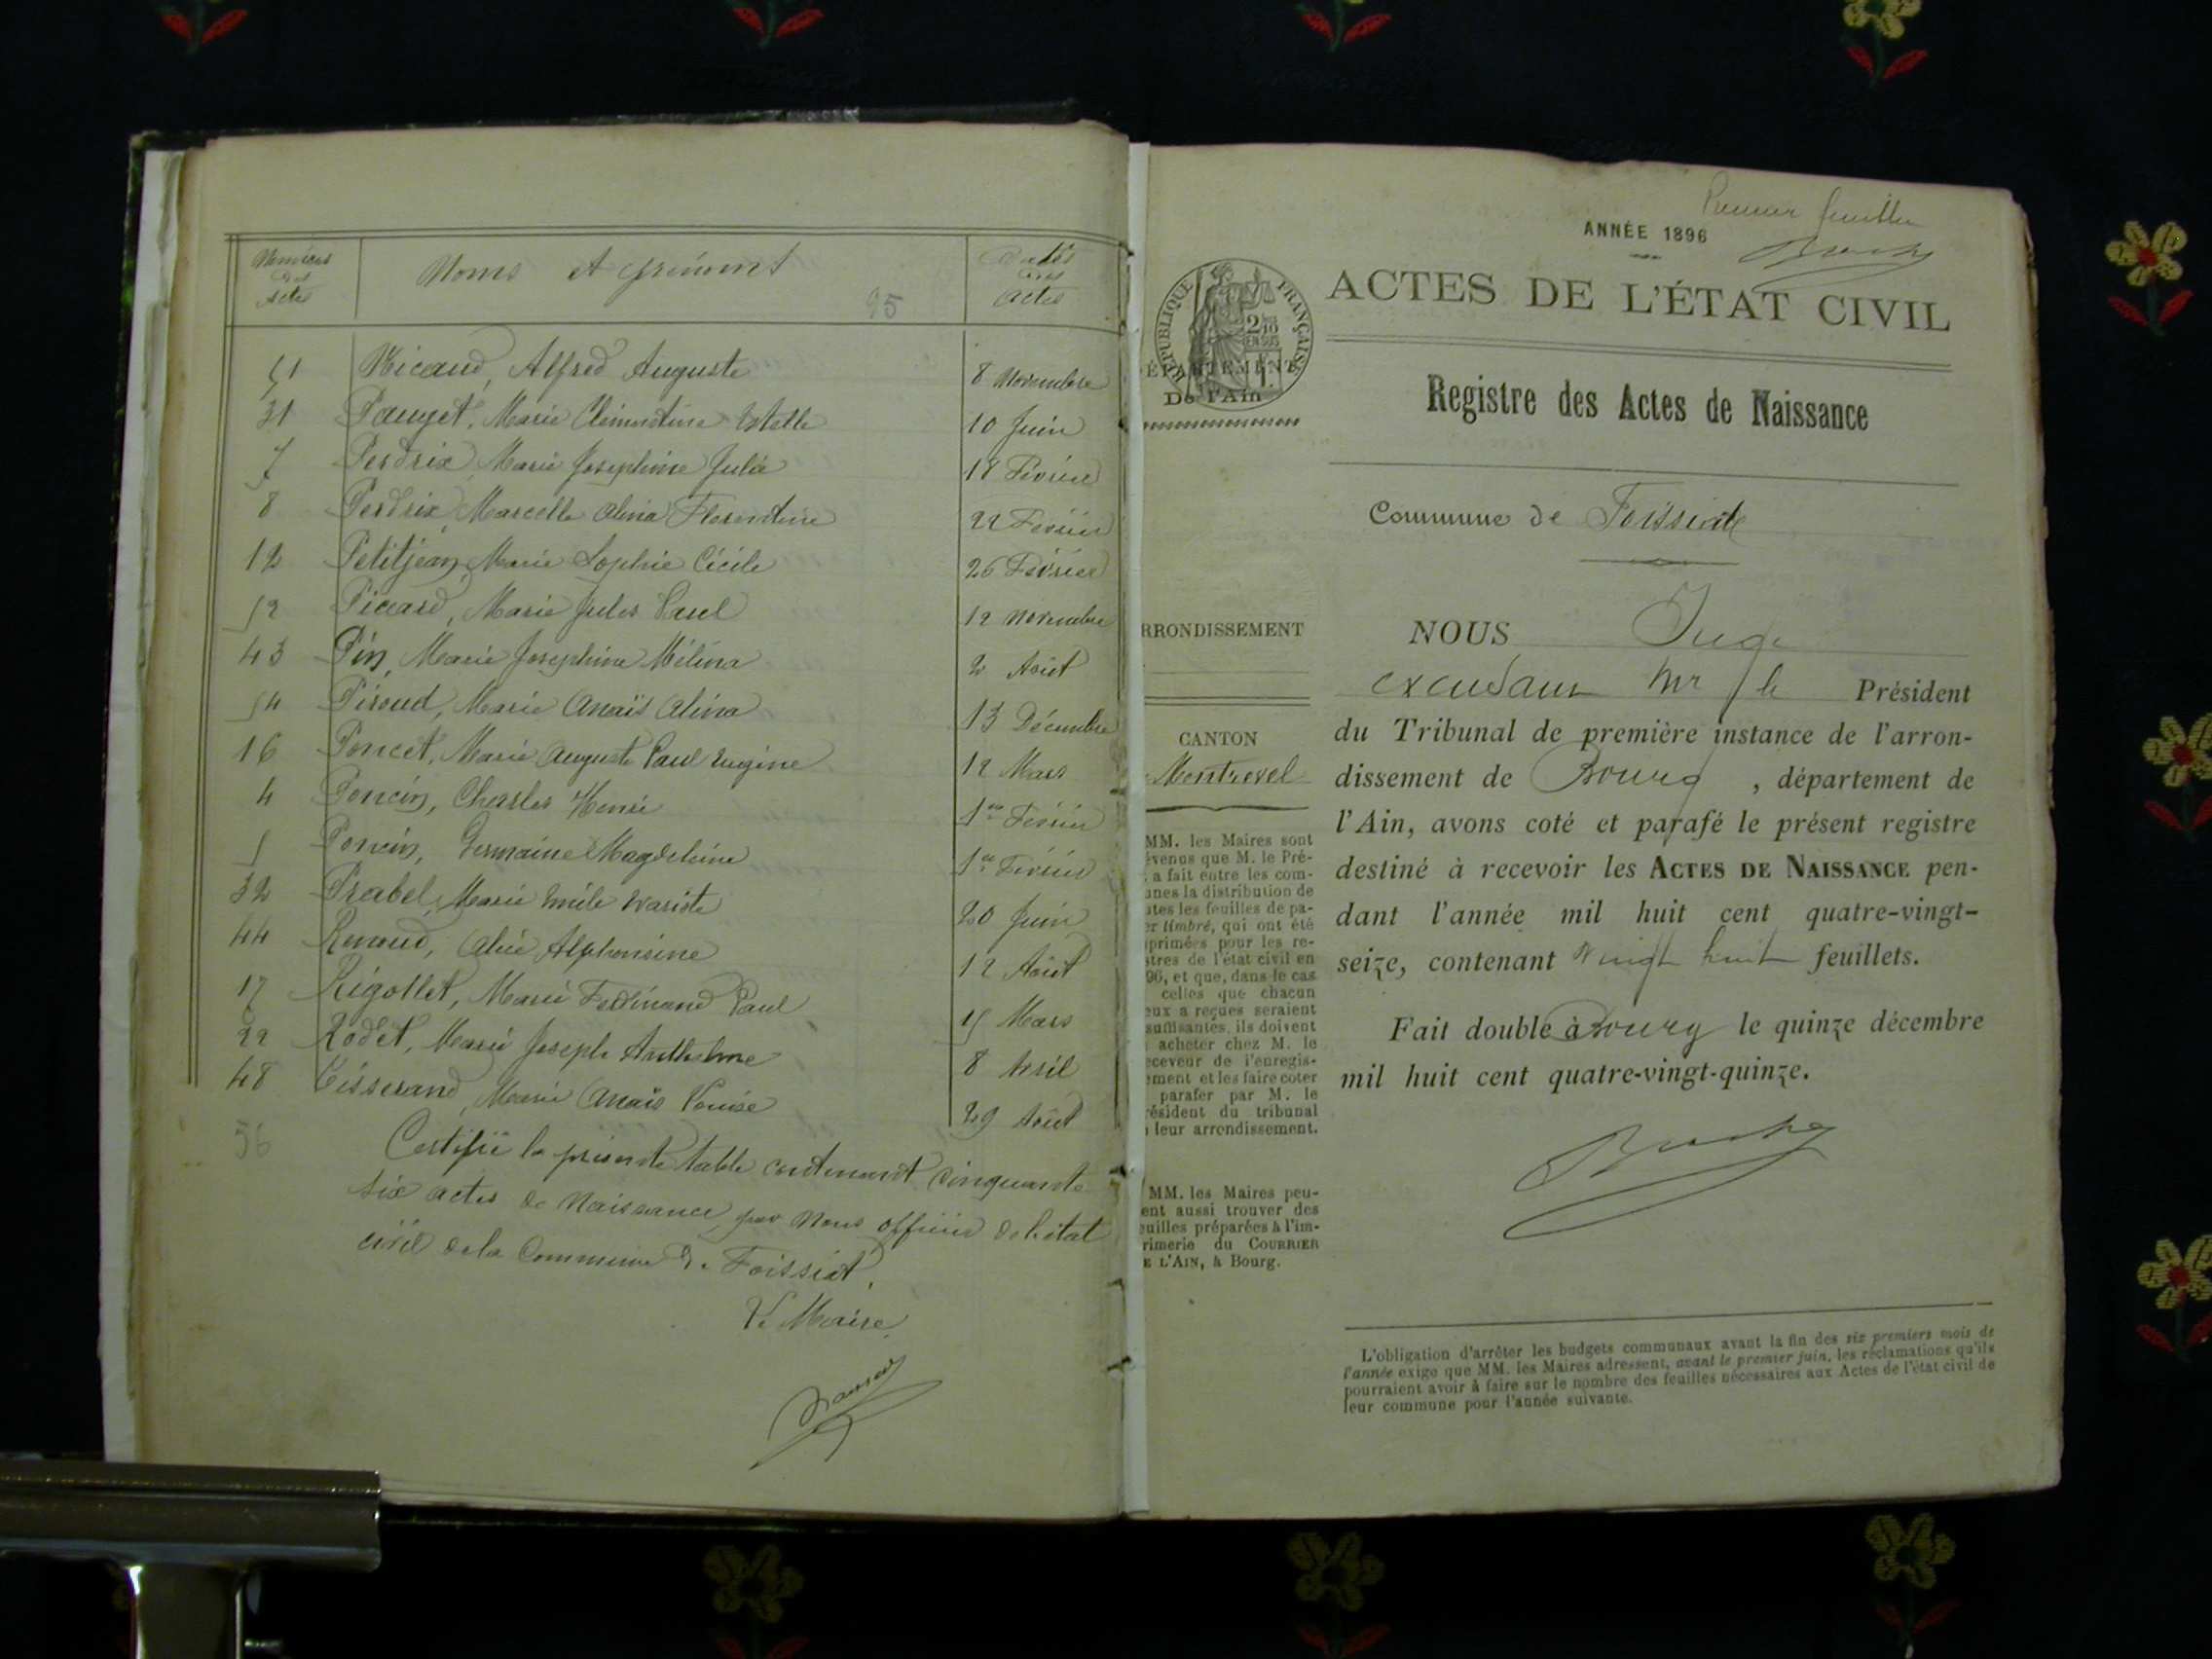 Numéros des Actes
Noms et prénoms
95
Dates des Actes
51 Nicaud, Alfred Auguste 8 Novembre
31 Pauget, Marie Clémentine Estelle 10 Juin
7 Perdrix, Marie Joséphine Julie 18 Février
8 Perdrix, Marcelle Alina Florentine 22 Février
12 Petitjean, Marie Sophie Cécile 26 Février
52 Picard, Marie Jules Paul 12 Novembre
43 Pin, Marie Joséphine Mélina 2 Août
54 Piroud, Marie Anaïs Alina 13 Décembre
16 Poncet, Marie Auguste Paul Eugène 12 Mars
4 Poncin, Charles Henri 1er Février
5 Poncin, Germaine Magdeleine 1er Février
32 Prabel, Marie Emile Evariste 20 Juin
44 Renoud, Alice Alphonsine 12 Août
17 Rigollet, Marie Ferdinand Paul 15 Mars
22 Rodet, Marie Joseph Anthelme 8 Avril
48 Tisserand, Marie Anaïs Louise 29 Août
56
Certifié la présente table contenant cinquante
six actes de Naissance, par Nous officier de l'état
civil de la Commune de Foissiat.
Le Maire
Premier feuillet
ANNÉE 1896
ACTES DE L'ÉTAT CIVIL
RÉPUBLIQUE FRANÇAISE
2/10 EN SUS
1f.
ÉPARTEMENT
De l'Ain
Registre des Actes de Naissance
Commune de Foissiat
NOUS Juge
Mr le Président
du Tribunal de première instance de l'arron-
dissement de Bourg, département de
l'Ain, avons coté et parafé le présent registre
destiné à recevoir les ACTES DE NAISSANCE pen-
dant l'année mil huit cent quatre-vingt-
seize, contenant Vingt huit feuillets.
Fait double à Bourg le quinze décembre
mil huit cent quatre-vingt-quinze.
RRONDISSEMENT
CANTON
Montrevel
MM. les Maires sont
évenus que M. le Pré-
a fait entre les com-
unes la distribution de
utes les feuilles de pa-
er timbré, qui ont été
primées pour les re-
stres de l'état civil en
96, et que, dans le cas
celles que chacun
eux a reçues seraient
suffisantes, ils doivent
acheter chez M. le
eceveur de l'enregis-
ement et les faire coter
parafer par M. le
résident du tribunal
leur arrondissement.
MM. les Maires peu-
ent aussi trouver des
euilles préparées à l'im-
rimerie du COURRIER
E L'AIN, à Bourg.
L'obligation d'arrêter les budgets communaux avant la fin des six premiers mois de
l'année exige que MM. les Maires adressent, avant le premier juin, les réclamations qu'ils
pourraient avoir à faire sur le nombre des feuilles nécessaires aux Actes de l'état civil de
leur commune pour l'année suivante.